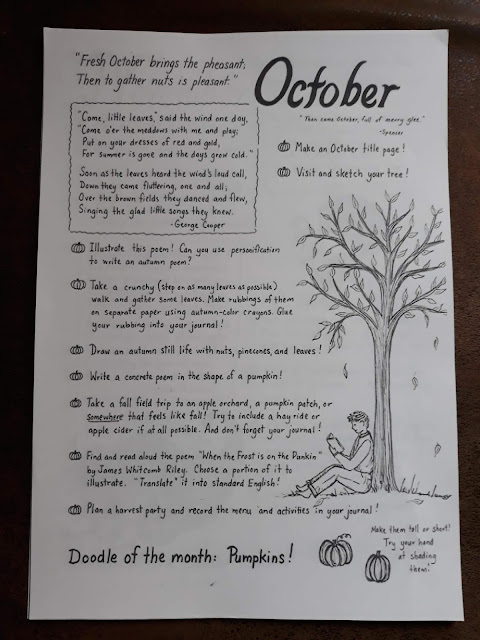 "Fresh October brings the pheasant;
Then to gather nuts is pleasant."
October
"Then came October, full of merry glee."
-Spenser
"Come, little leaves," said the wind one day,
"Come o'er the meadows with me and play;
Put on your dresses of red and gold,
For summer is gone and the days grow cold."
Soon as the leaves heard the wind's loud call,
Down they came fluttering, one and all;
Over the brown fields they danced and flew,
Singing the glad little songs they knew.
-George Cooper
Make an October title page!
Visit and sketch your tree!
Illustrate this poem! Can you use personification
to write an autumn poem?
Take a crunchy (step on as many leaves as possible)
walk and gather some leaves. Make rubbings of them
on separate paper using autumn-color crayons. Glue
your rubbing into your journal!
Draw an autumn still life with nuts, pinecones, and leaves!
Write a concrete poem in the shape of a pumpkin!
Take a fall field trip to an apple orchard, a pumpkin patch, or
somewhere that feels like fall! Try to include a hay ride or
apple cider if at all possible. And don't forget your journal!
Find and read aloud the poem "When the Frost is on the Punkin"
by James Whitcomb Riley. Choose a portion of it to
illustrate. "Translate" it into standard English!
Plan a harvest party and record the menu and activities in your journal!
Doodle of the month: Pumpkins!
Make them tall or short!
Try your hand
at shading
them!